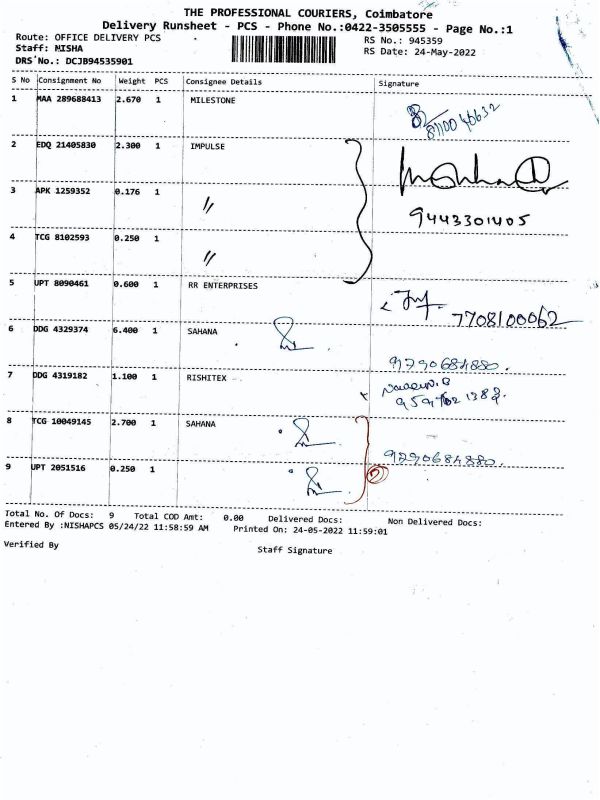 THE PROFESSIONAL COURIERS, Coimbatore
Delivery Runsheet - PCS - Phone No.:0422-3505555 - Page No.:1
Route: OFFICE DELIVERY PCS RS No.: 945359
Staff: MISHA RS Date: 24-May-2022
DRS No.: DCJB94535901
S No Consignment No Weight PCS Consignee Details Signature
1 MAA 289688413 2.670 1 MILESTONE
2 EDQ 21405830 2.300 1 IMPULSE
3 APK 1259352 0.176 1 〃
9443301405
4 TCG 8102593 0.250 1 〃
5 UPT 8090461 0.600 1 RR ENTERPRISES
7708100062
6 DDG 4329374 6.400 1 SAHANA
9790684880.
7 DDG 4319182 1.100 1 RISHITEX
8 TCG 10049145 2.700 1 SAHANA
9790684880.
9 UPT 2051516 0.250 1
Total No. Of Docs: 9 Total COD Amt: 0.00 Delivered Docs: Non Delivered Docs:
Entered By :NISHAPCS 05/24/22 11:58:59 AM Printed On: 24-05-2022 11:59:01
Verified By
Staff Signature